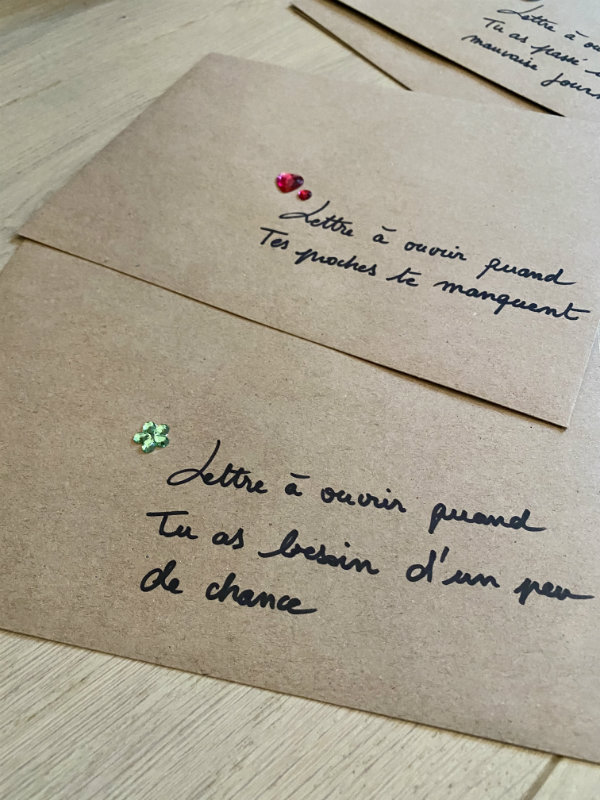 Lettre à ou
Tu as passé
mauvaise journ
Lettre à ouvrir quand
Tes proches te manquent
Lettre à ouvrir quand
Tu as besoin d'un peu
de chance